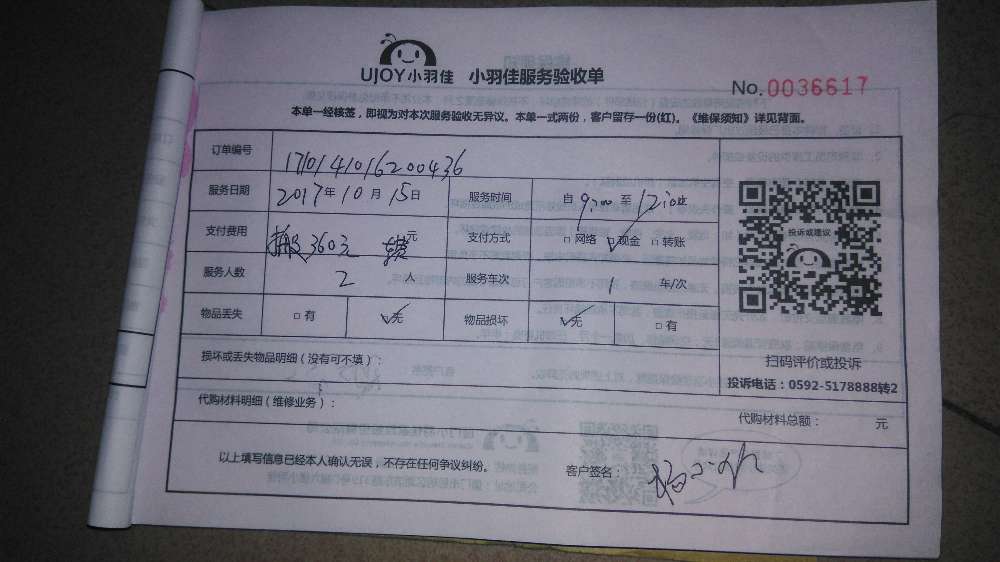 UJOY小羽佳 小羽佳服务验收单
No.0036617
本单一经核签，即视为对本次服务验收无异议。本单一式两份，客户留存一份(红)。《维保须知》详见背面。
订单编号 17101401620043​6
服务日期 2017年10月15日 服务时间 自9:00至12:00
支付费用 360元 元 支付方式 □网络 ☑现金 □转账
服务人数 2人 服务车次 1 车/次
物品丢失 □有 ☑无 物品损坏 ☑无 □有
投诉或建议
扫码评价或投诉
投诉电话：0592-5178888转2
损坏或丢失物品明细（没有可不填）：
代购材料明细（维修业务）： 代购材料总额： 元
以上填写信息已经本人确认无误，不存在任何争议纠纷。 客户签名：